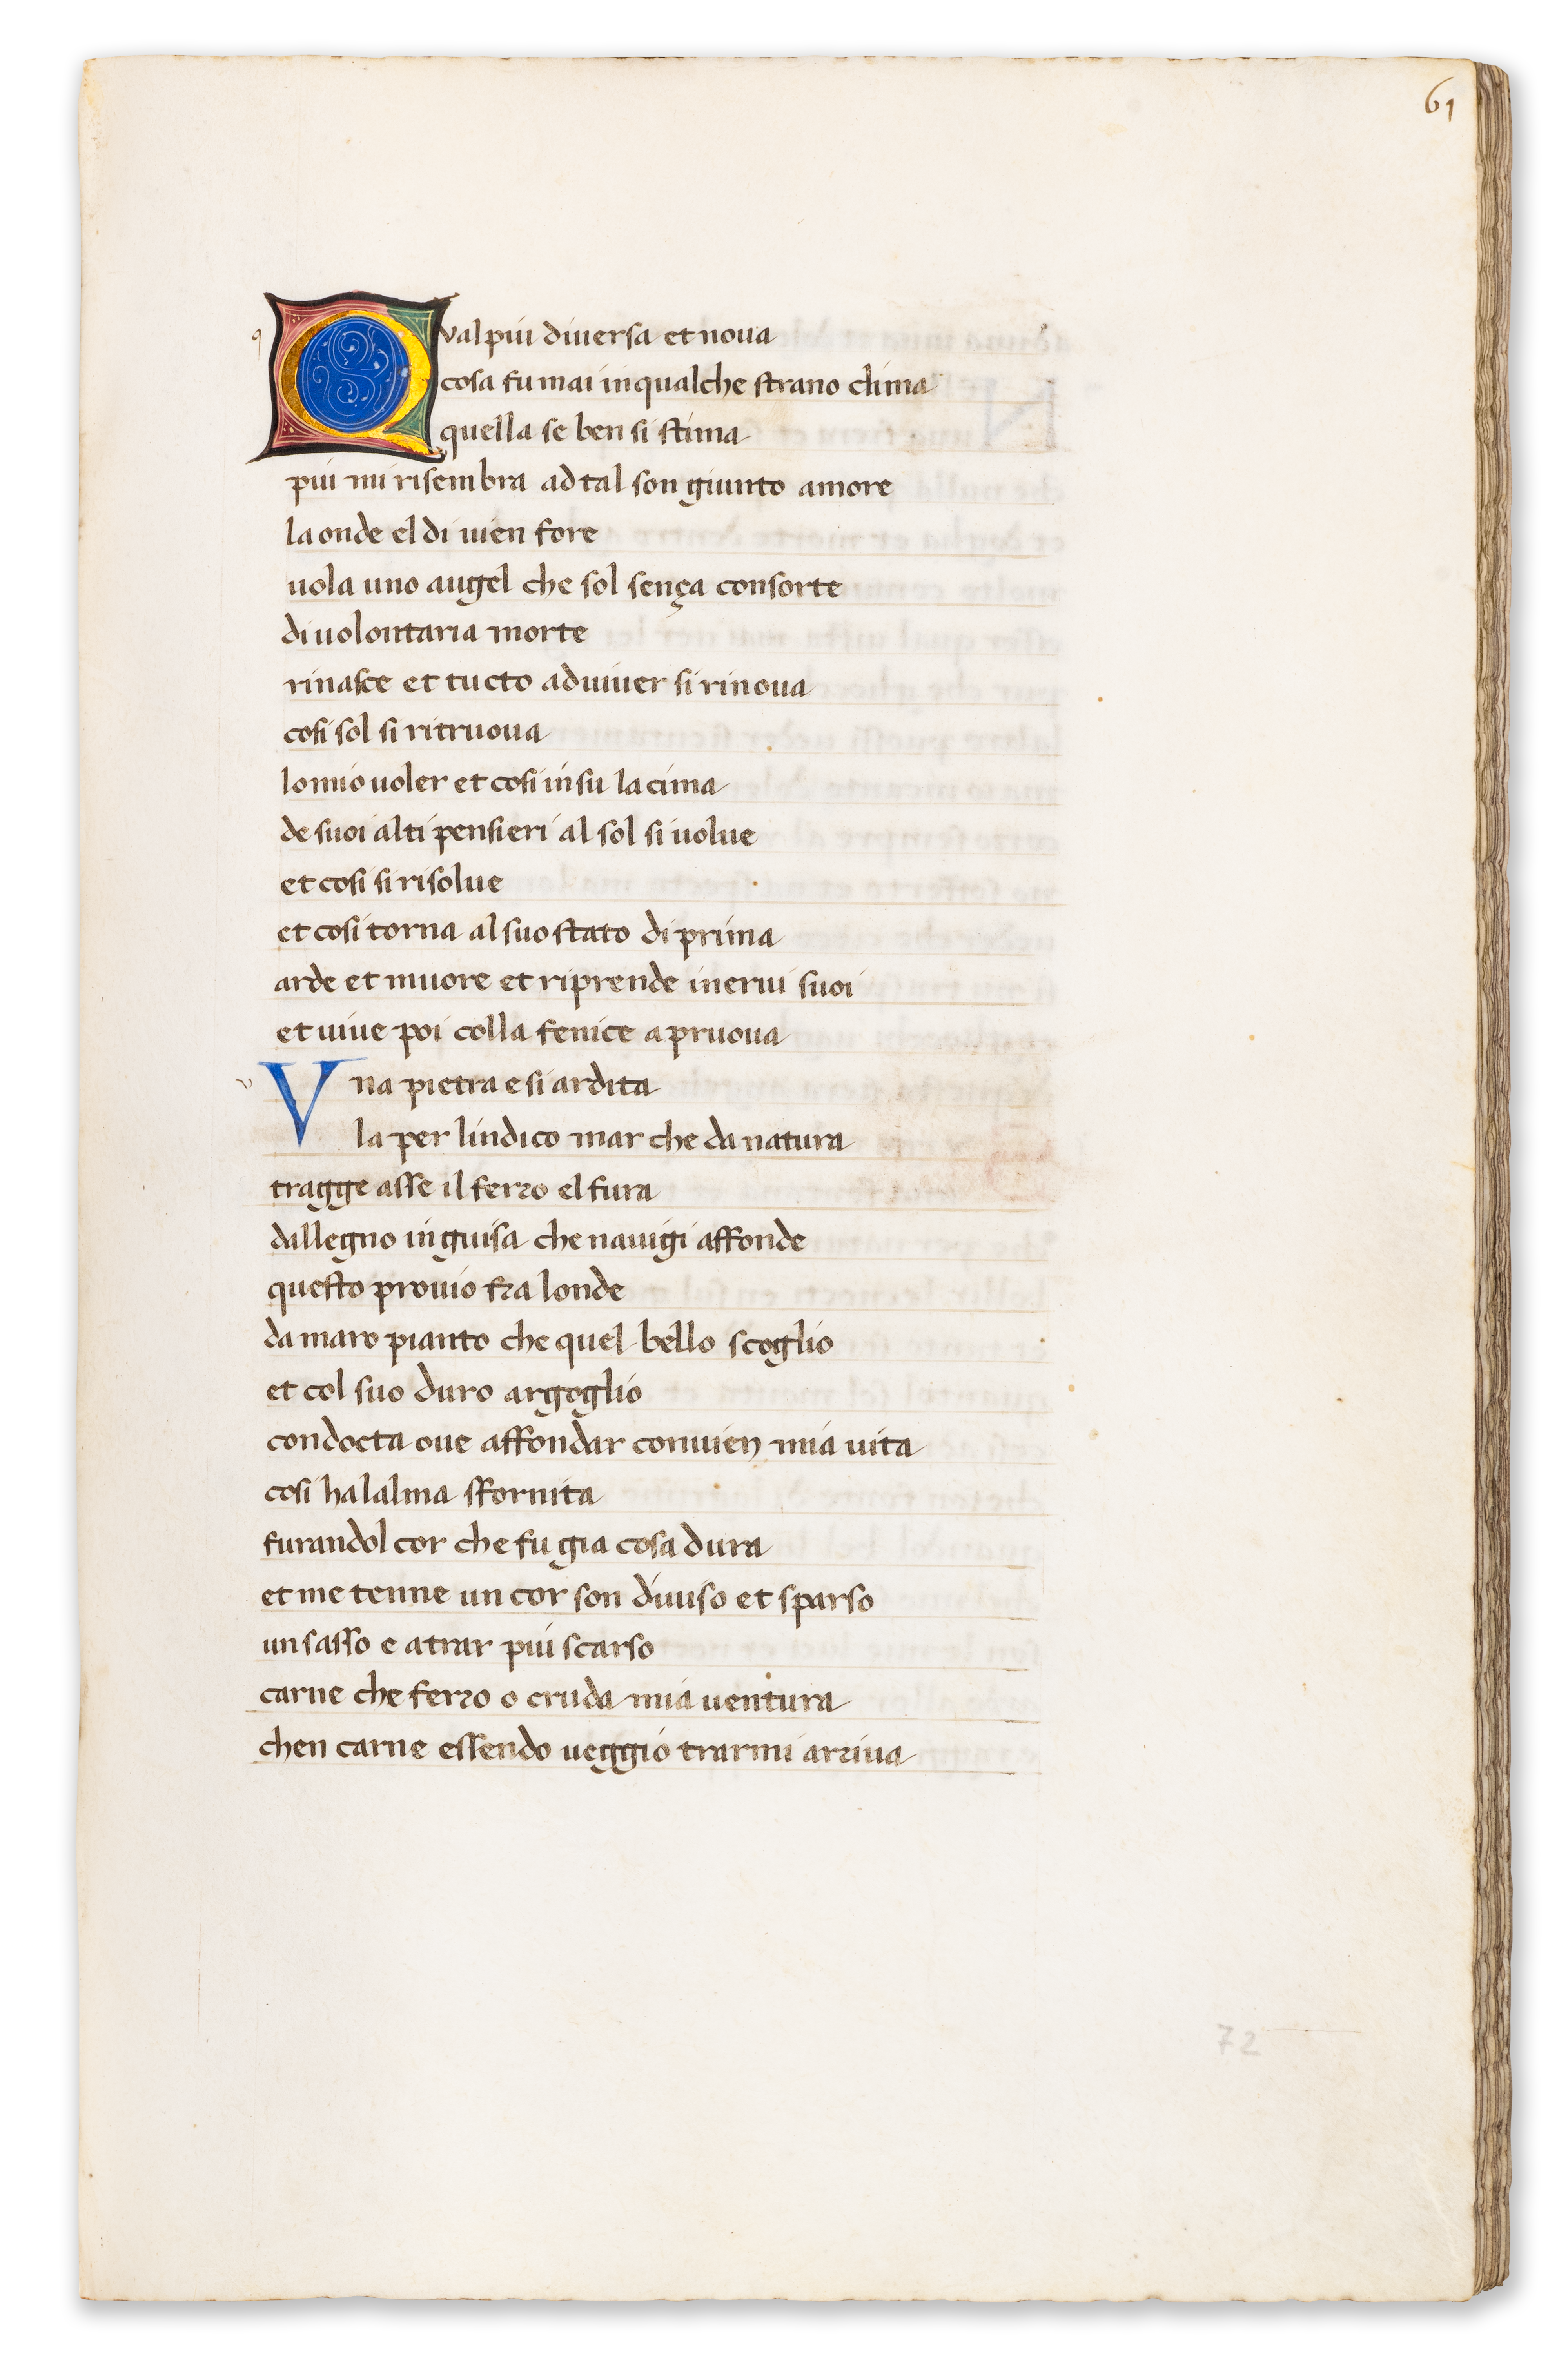 61
q
Qval piu diuersa et noua
cosa fu mai in qualche strano clima
quella se ben si stima
piu mi risembra ad tal son giunto amore
la onde el di uien fore
uola uno augel che sol sença consorte
di uolontaria morte
rinasce et tucto ad uiuer si rinoua
cosi sol si ritruoua
lo mio uoler et cosi in su la cima
de suoi alti pensieri al sol si uolue
et cosi si risolue
et cosi torna al suo stato di prima
arde et muore et riprende inerui suoi
et uiue poi colla fenice a pruoua
v
Vna pietra e si ardita
la per lindico mar che da natura
tragge asse il ferro el fura
dal legno in guisa che nauigi affonde
questo prouio fra londe
damaro pianto che quel bello scoglio
et col suo duro argoglio
condocta oue affondar conuien mia uita
cosi ha lalma sfornita
furandol cor che fu gia cosa dura
et me tenne un cor son diuiso et sparso
un sasso e a trar piu scarso
carne che ferro o cruda mia uentura
chen carne essendo ueggio trarmi arriua
72